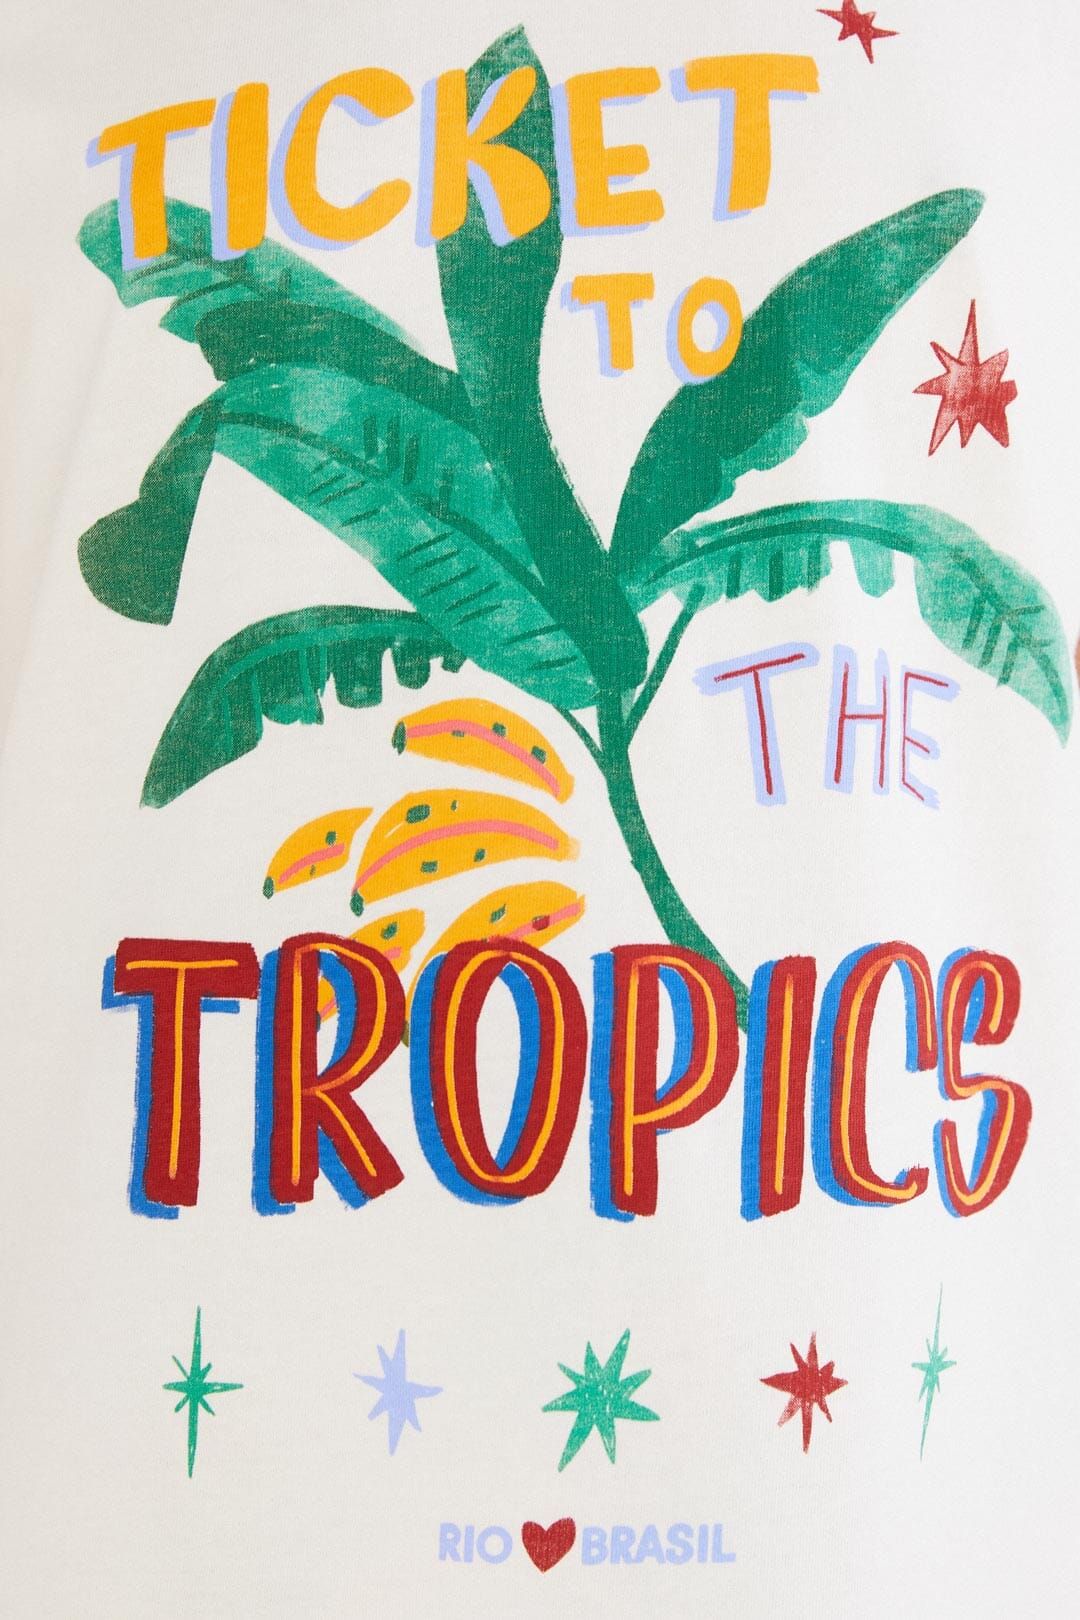 TICKET
TO
THE
TROPICS
RIO BRASIL